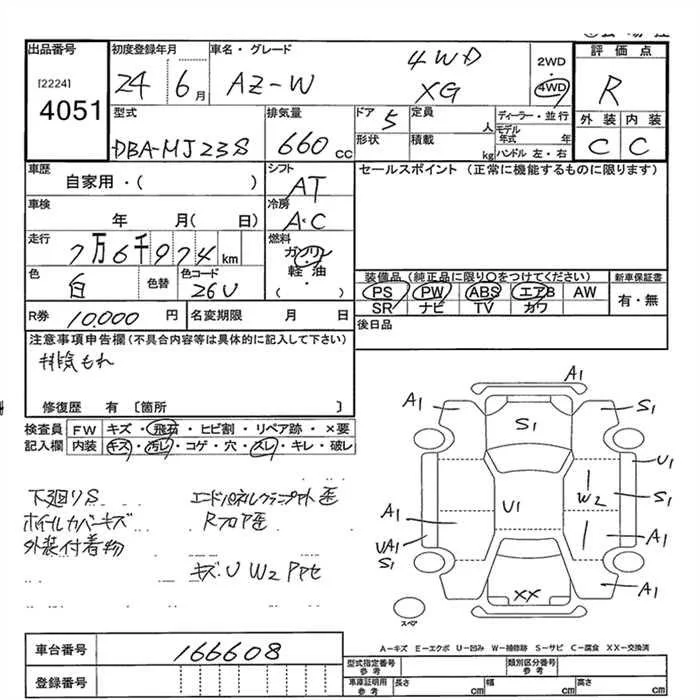 出品番号 初度登録年月 車名・グレード 4WD 2WD 評価点
[2224] 24 6月 AZ-W XG 4WD R
4051
型式 排気量 ドア 5 定員 人 ディーラー・並行 外装 内装
DBA-MJ23S 660cc 形状 積載 kg モデル年式 年 ハンドル 左・右 C C
車歴 シフト セールスポイント (正常に機能するものに限ります)
自家用・( ) AT
車検 冷房
年 月( 日) A・C
走行 燃料
7万6千974km ガソリン
色 色替 色コード 軽・油 装備品(純正品に限り○をつけてください) 新車保証書
白 26U ( ・ ) PS PW ABS エアB AW 有・無
SR ナビ TV カワ
R券 10,000円 名変期限 月 日 後日品
注意事項申告欄(不具合内容等は具体的に記入して下さい)
排気もれ
修復歴 有 〔箇所 〕
検査員 FW キズ・飛石・ヒビ割・リペア跡・×要
記入欄 内装 キズ・汚レ・コゲ・穴・スレ・キレ・破レ
下廻りS
ホイールカバーキズ Rフロア歪
外装付着物
キズ・U W2
A1
A1 S1
S1
U1
W2 S1
U1
A1
A1
UA1
S1
A1
XX
スペア
A-キズ E-エクボ U-凹み W-補修跡 S-サビ C-腐食 XX-交換済
車台番号 166608 型式指定番号 参考 類別区分番号 参考
登録番号 車庫証明用 参考 長さ cm 幅 cm 高さ cm